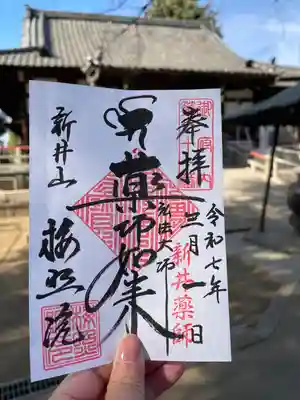 奉拝
令和七年
三月一日
新井薬師
薬師如来
弘法大師
新井山
梅照院